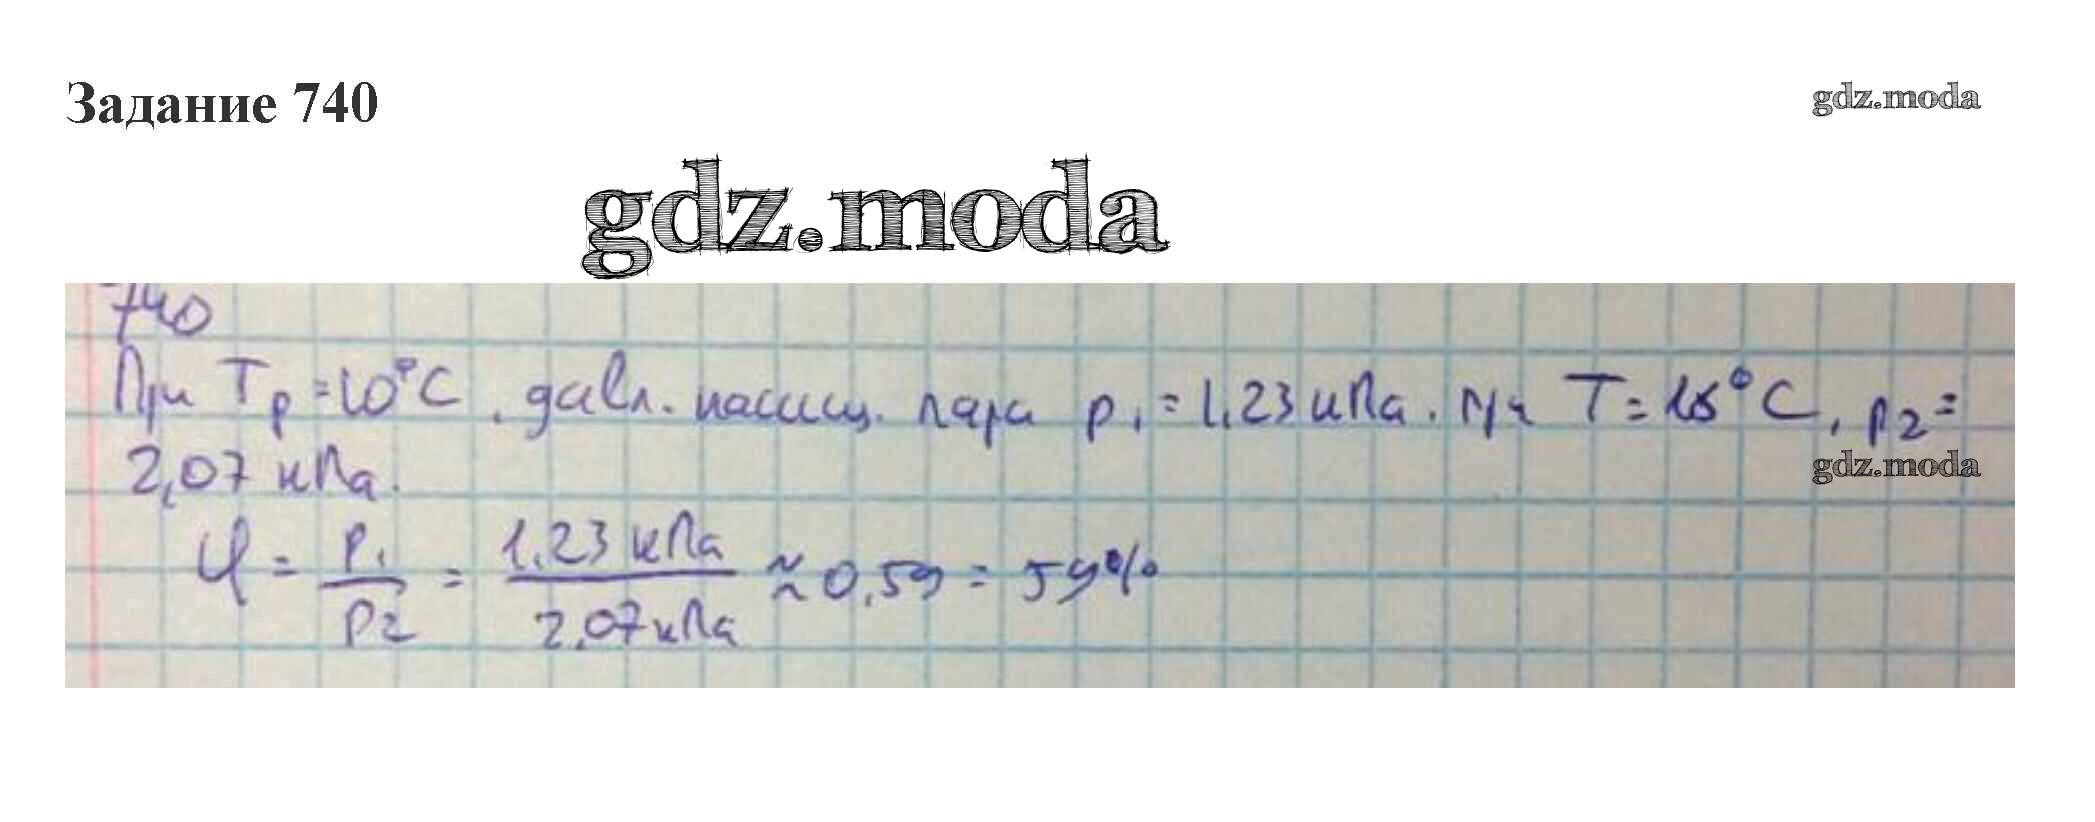 Задание 740
gdz.moda
gdz.moda
740
При Tр = 10°C, давл. насыщ. пара p₁ = 1,23 кПа. при T = 18°C, p₂ =
2,07 кПа.
gdz.moda
φ = p₁/p₂ = 1,23 кПа/2,07 кПа ≈ 0,59 = 59%